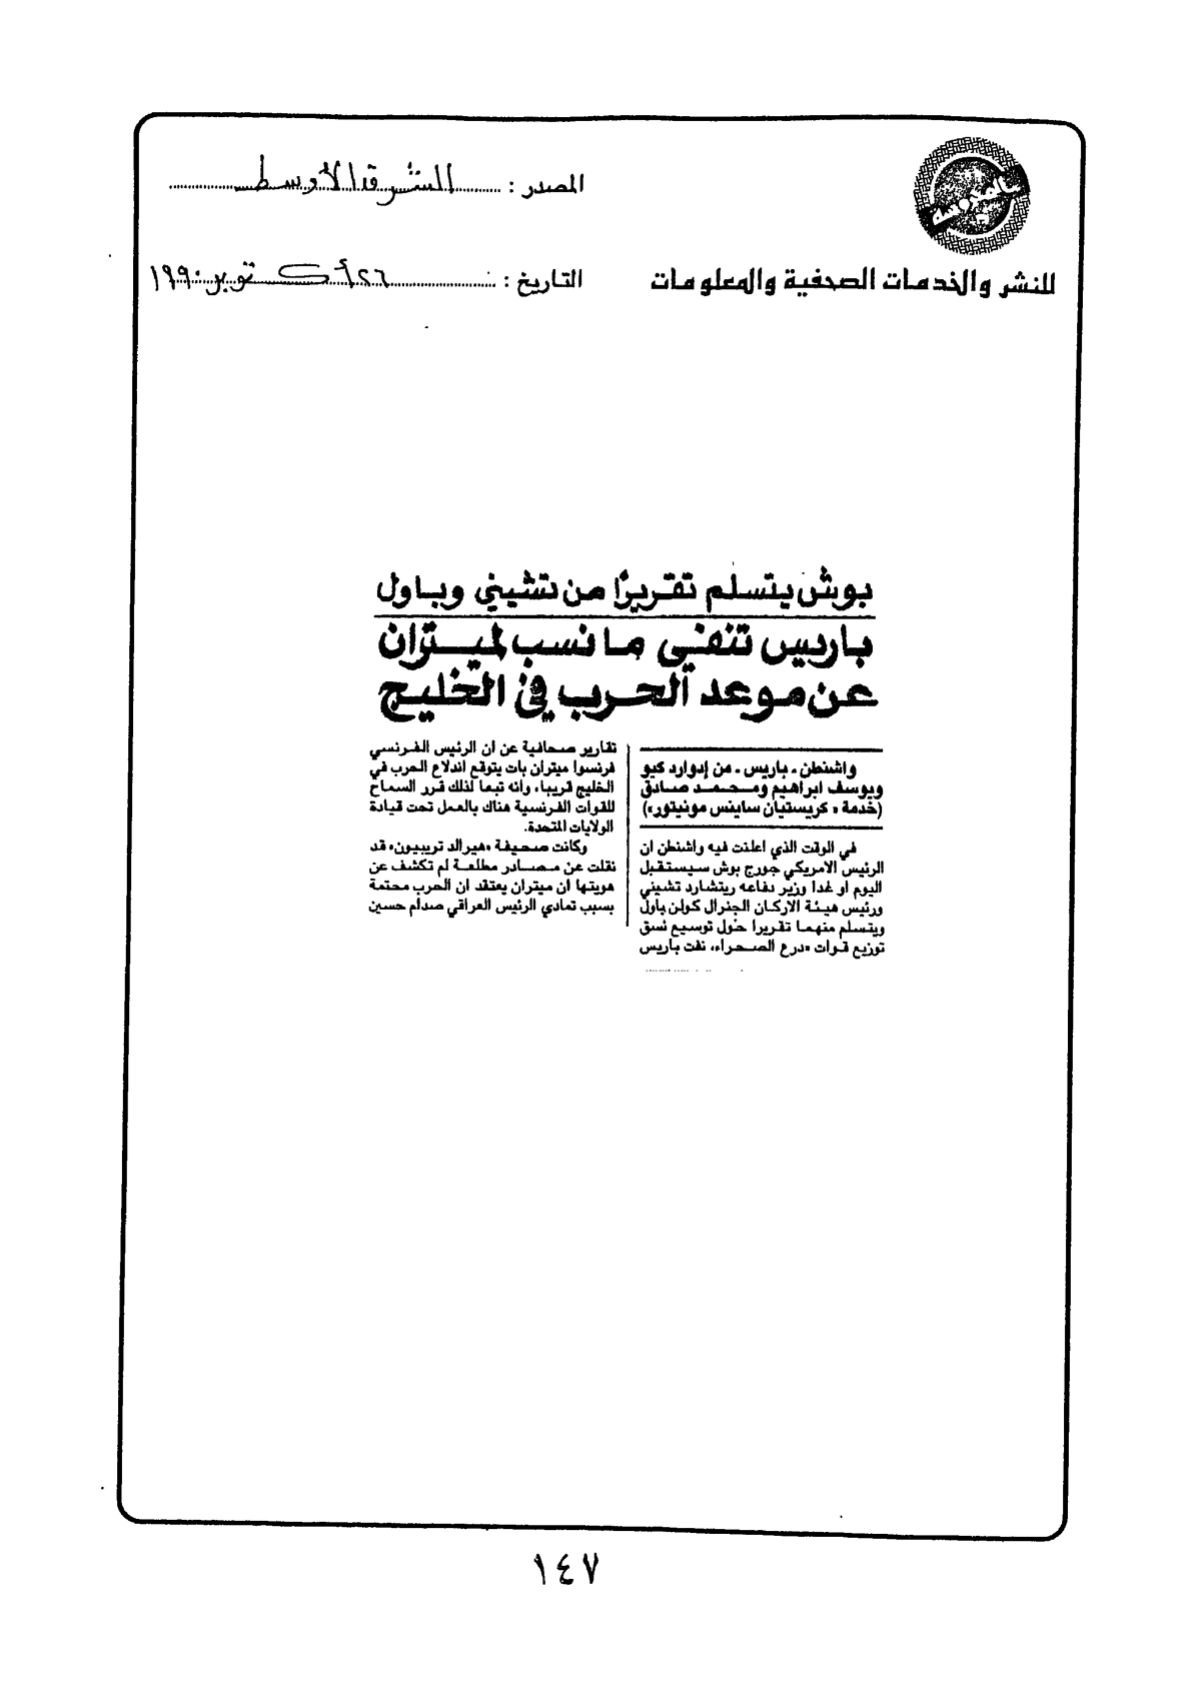 المصدر : الشرق الأوسط
للنشر والخدمات الصحفية والمعلومات
التاريخ : ٢٦ أكتوبر ١٩٩٠
بوش يتسلم تقريرًا من تشيني وباول
باريس تنفي ما نسب لميتران
عن موعد الحرب في الخليج
واشنطن ـ باريس ـ من إدوارد كيو
ويوسف ابراهيم ومحمد صادق
(خدمة « كريستيان ساينس مونيتور»)
في الوقت الذي اعلنت فيه واشنطن ان
الرئيس الامريكي جورج بوش سيستقبل
اليوم او غدا وزير دفاعه ريتشارد تشيني
ورئيس هيئة الاركان الجنرال كولن باول
ويتسلم منهما تقريرا حول توسيع نسق
توزيع قوات «درع الصحراء» نفت باريس
تقارير صحافية عن ان الرئيس الفرنسي
فرنسوا ميتران بات يتوقع اندلاع الحرب في
الخليج قريبا، وانه تبعا لذلك قرر السماح
للقوات الفرنسية هناك بالعمل تحت قيادة
الولايات المتحدة.
وكانت صحيفة «هيرالد تريبيون» قد
نقلت عن مصادر مطلعة لم تكشف عن
هويتها ان ميتران يعتقد ان الحرب محتمة
بسبب تمادي الرئيس العراقي صدام حسين
١٤٧